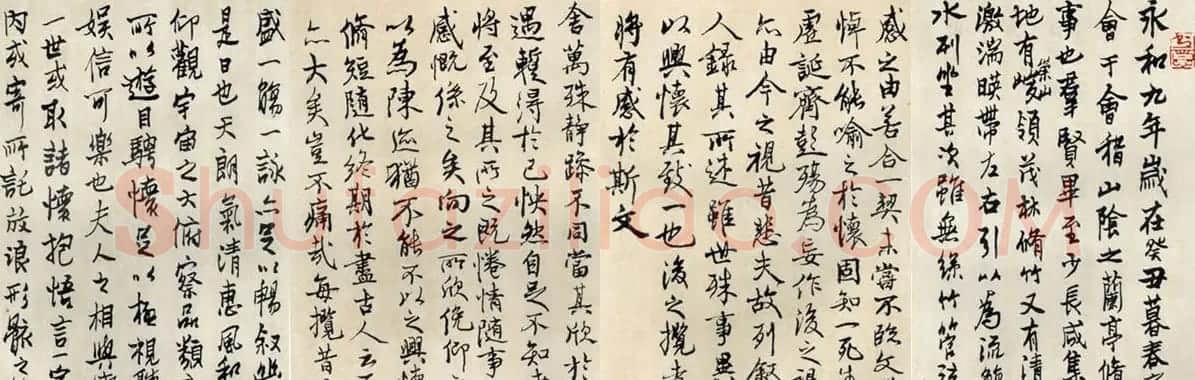 永和九年歲在癸丑暮春
會于會稽山陰之蘭亭脩
事也羣賢畢至少長咸集
地有崇山峻領茂林脩竹又有清
激湍暎帶左右引以為流觴
水列坐其次雖無絲竹管弦
感之由若合一契未嘗不臨文
悼不能喻之於懷固知一死生
虛誕齊彭殤為妄作後之視
亦由今之視昔悲夫故列敘
人錄其所述雖世殊事異
以興懷其致一也後之攬者
將有感於斯文
舍萬殊靜躁不同當其欣於
遇暫得於己怏然自足不知老
將至及其所之既惓情隨事
感慨係之矣向之所欣俛仰
以為陳迹猶不能不以之興懷
脩短隨化終期於盡古人云
亦大矣豈不痛哉每攬昔
盛一觴一詠亦足以暢敘幽
是日也天朗氣清惠風和
仰觀宇宙之大俯察品類
所以遊目騁懷足以極視聽
娛信可樂也夫人之相與
一世或取諸懷抱悟言一室
內或寄所託放浪形骸之
Shufaziliao.com